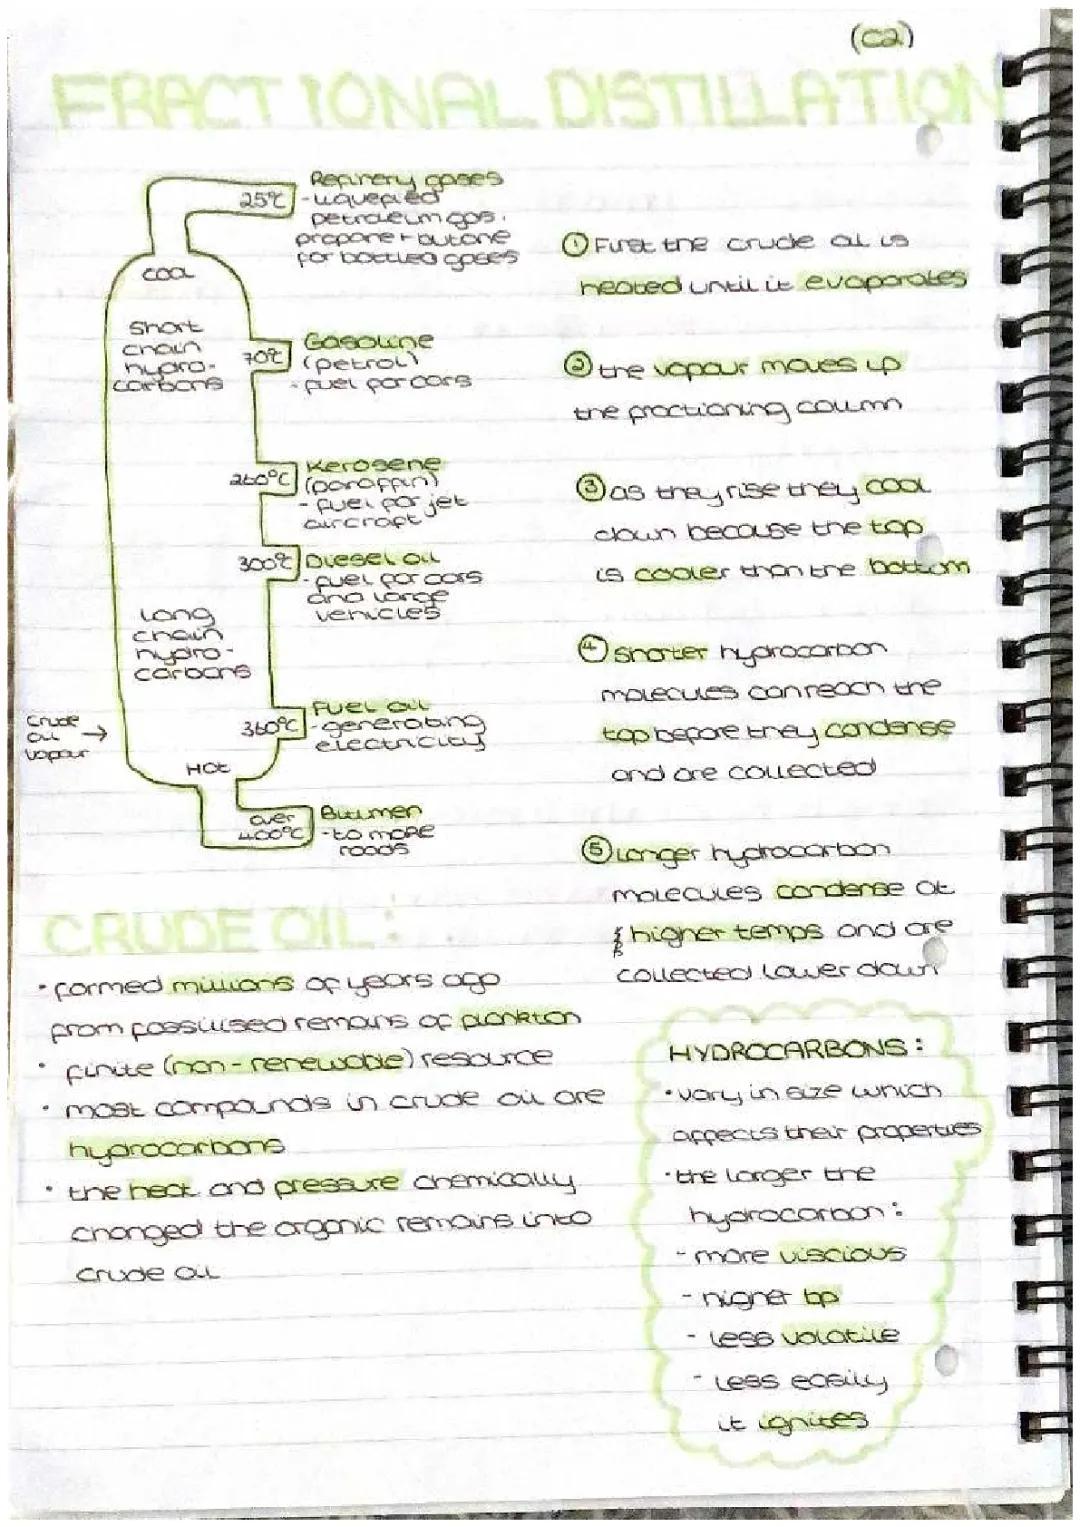 (C2)
FRACTIONAL DISTILLATION
25°C
Refinery gases
- liquefied
petroleum gas.
propane + butane
for bottled gases
cool
short
chain
hydro-
carbons
70°C
Gasoline
(petrol)
- fuel for cars
260°C
Kerosene
(paraffin)
- fuel for jet
aircraft
300°C
Diesel oil
- fuel for cars
and large
vehicles
long
chain
hydro-
carbons
crude
oil →
vapour
360°C
Fuel oil
- generating
electricity
HOt
over
400°C
Bitumen
- to make
roads
① First the crude oil is
heated until it evaporates
② the vapour moves up
the fractioning column
③ as they rise they cool
down because the top
is cooler than the bottom
④ shorter hydrocarbon
molecules can reach the
top before they condense
and are collected
⑤ Longer hydrocarbon
molecules condense at
higher temps and are
collected lower down
CRUDE OIL:
• formed millions of years ago
from fossilised remains of plankton
• finite (non-renewable) resource
• most compounds in crude oil are
hydrocarbons
• the heat and pressure chemically
changed the organic remains into
crude oil
HYDROCARBONS:
• vary in size which
affects their properties
• the larger the
hydrocarbon:
- more viscious
- higher bp
- less volatile
- less easily
it ignites